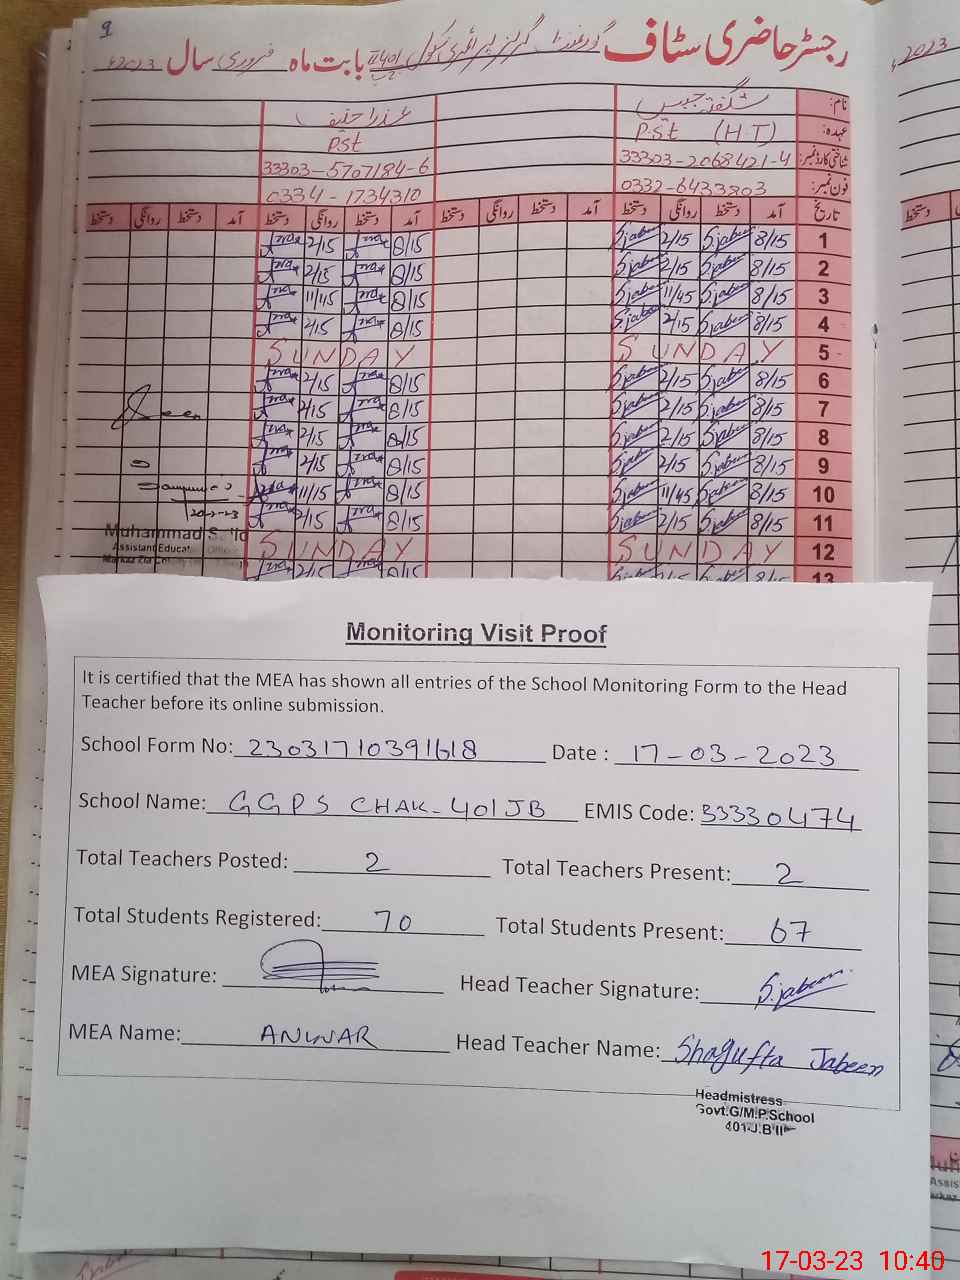 9
رجسٹر حاضری سٹاف گورنمنٹ گرلز پرائمری سکول 401 ج ب II بابت ماہ فروری سال 2023ء
2023
نام: شگفتہ جبیں عذرا حنیف
عہدہ: P.St (H.T) P.St
شناختی کارڈ نمبر: 33303-2068421-4 33303-5707184-6
فون نمبر: 0332-6433803 0334-1734310
تاریخ آمد دستخط روانگی دستخط آمد دستخط روانگی دستخط آمد دستخط روانگی دستخط آمد دستخط روانگی دستخط
1 8/15 S.jabeen 2/15 S.jabeen 8/15 2/15
2 8/15 S.jabeen 2/15 S.jabeen 8/15 2/15
3 8/15 S.jabeen 11/45 S.jabeen 8/15 11/45
4 8/15 S.jabeen 2/15 S.jabeen 8/15 2/15
5 SUNDAY SUNDAY
6 8/15 S.jabeen 2/15 S.jabeen 8/15 2/15
7 8/15 S.jabeen 2/15 S.jabeen 8/15 2/15
8 8/15 S.jabeen 2/15 S.jabeen 8/15 2/15
9 8/15 S.jabeen 2/15 S.jabeen 8/15 2/15
10 8/15 S.jabeen 11/45 S.jabeen 8/15 11/15
11 8/15 S.jabeen 2/15 S.jabeen 8/15 2/15
12 SUNDAY SUNDAY
13 8/15 2/15 8/15 2/15
Seen
Muhammad
Assistant Educat
Markaz
Monitoring Visit Proof
It is certified that the MEA has shown all entries of the School Monitoring Form to the Head
Teacher before its online submission.
School Form No: 23031710391618 Date : 17-03-2023
School Name: GGPS CHAK-401JB EMIS Code: 33330474
Total Teachers Posted: 2 Total Teachers Present: 2
Total Students Registered: 70 Total Students Present: 67
MEA Signature: Head Teacher Signature: S.jabeen
MEA Name: ANWAR Head Teacher Name: Shagufta Jabeen
Headmistress
Govt.G/M.P.School
401-J.B II
Assis
17-03-23 10:40